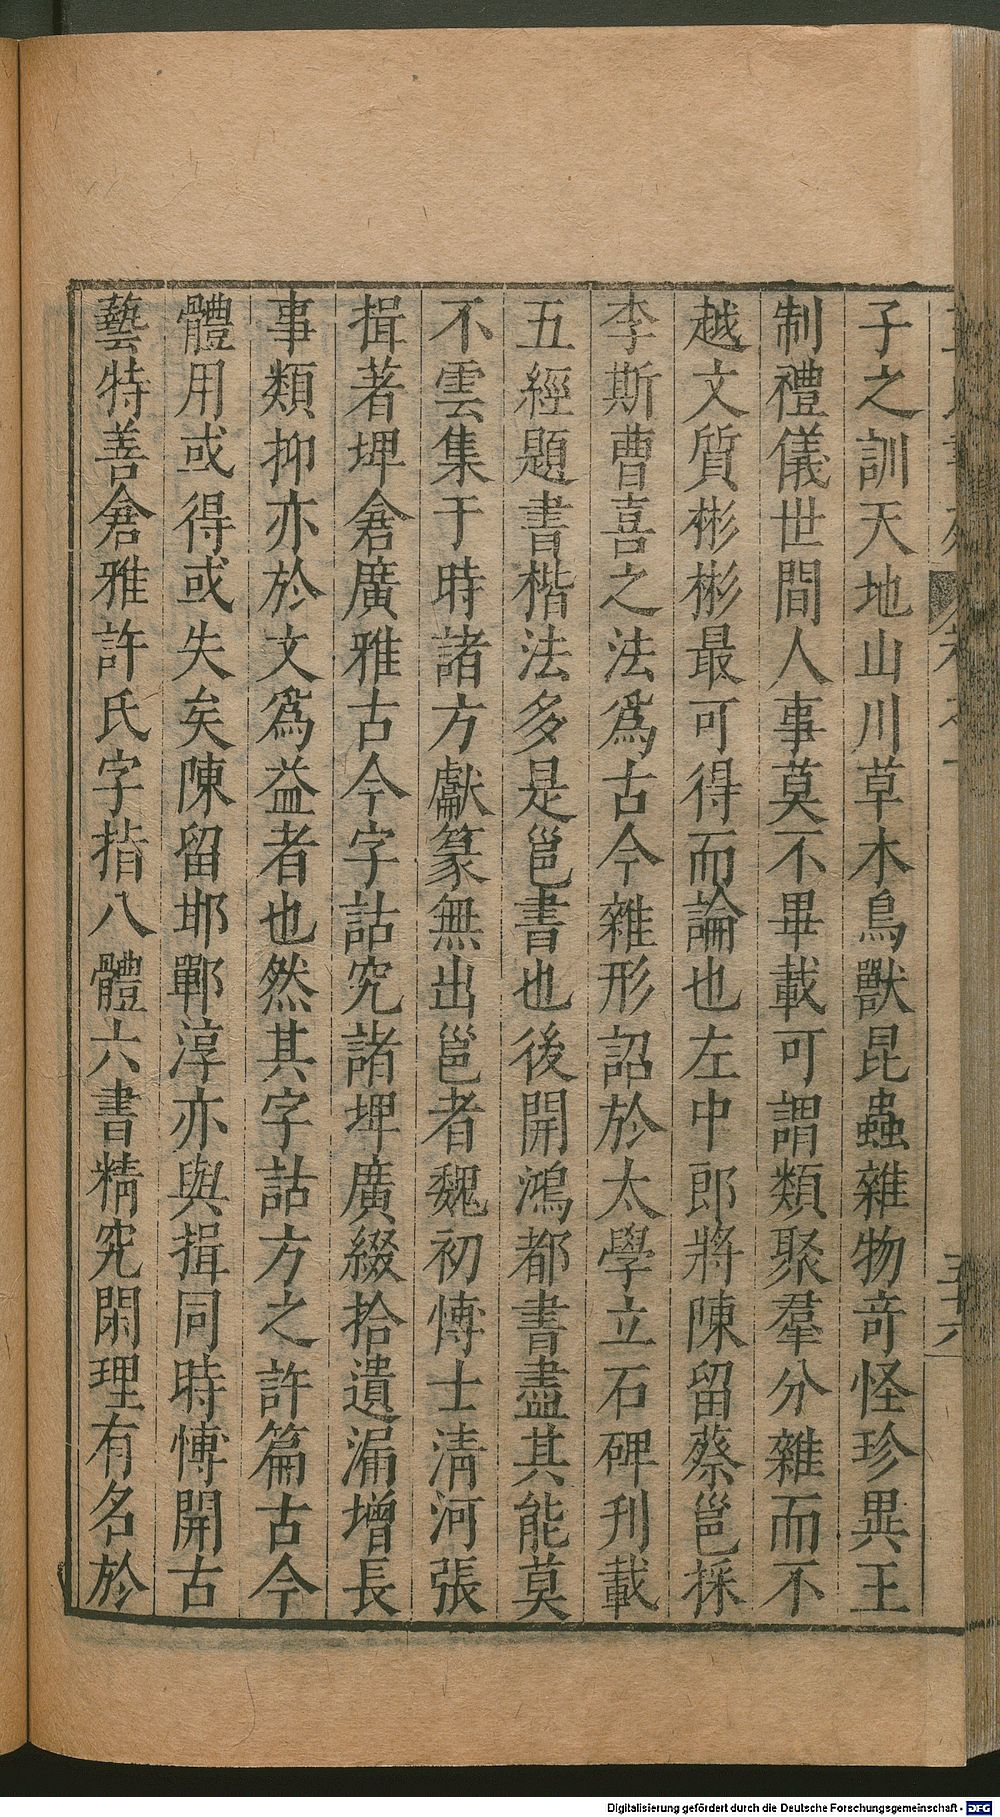 子之訓天地山川草木鳥獸昆蟲雜物竒怪珍異王
制禮儀世間人事莫不畢載可謂類聚羣分雜而不
越文質彬彬最可得而論也左中郎將陳留蔡邕採
李斯曹喜之法爲古今雜形詔於太學立石碑刋載
五經題書楷法多是邕書也後開鴻都書畫其能莫
不雲集于時諸方獻篆無出邕者魏初愽士清河張
揖著埤倉廣雅古今字詁究諸埤廣綴拾遺漏增長
事類抑亦於文爲益者也然其字詁方之許篇古今
體用或得或失矣陳留邯鄲淳亦與揖同時愽開古
藝特善倉雅許氏字指八體六書精究閑理有名於
五十六
Digitalisierung gefördert durch die Deutsche Forschungsgemeinschaft - DFG